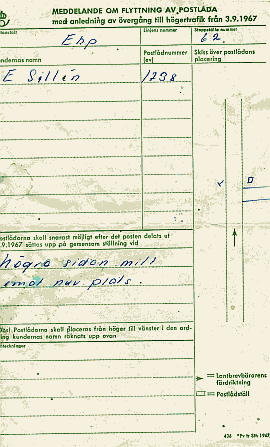 MEDDELANDE OM FLYTTNING AV POSTLÅDA
med anledning av övergång till högertrafik från 3.9.1967
Linjens nummer
Ställställe nummer
62
Ehp
undernas namn
Postlådnummer
(ev)
Skiss över postlådans
placering
E Sillén
1238
ostlådorna skall snarast möjligt efter det posten delats ut
.9.1967 sättas upp på gemensam ställning vid
högra sidan mitt
emot nuv plats.
Obs! Postlådorna skall placeras från höger till vänster i den ord-
ing kundernas namn räknats upp ovan
teckningar
= Lantbrevbärarens
färdriktning
= Postlådställ